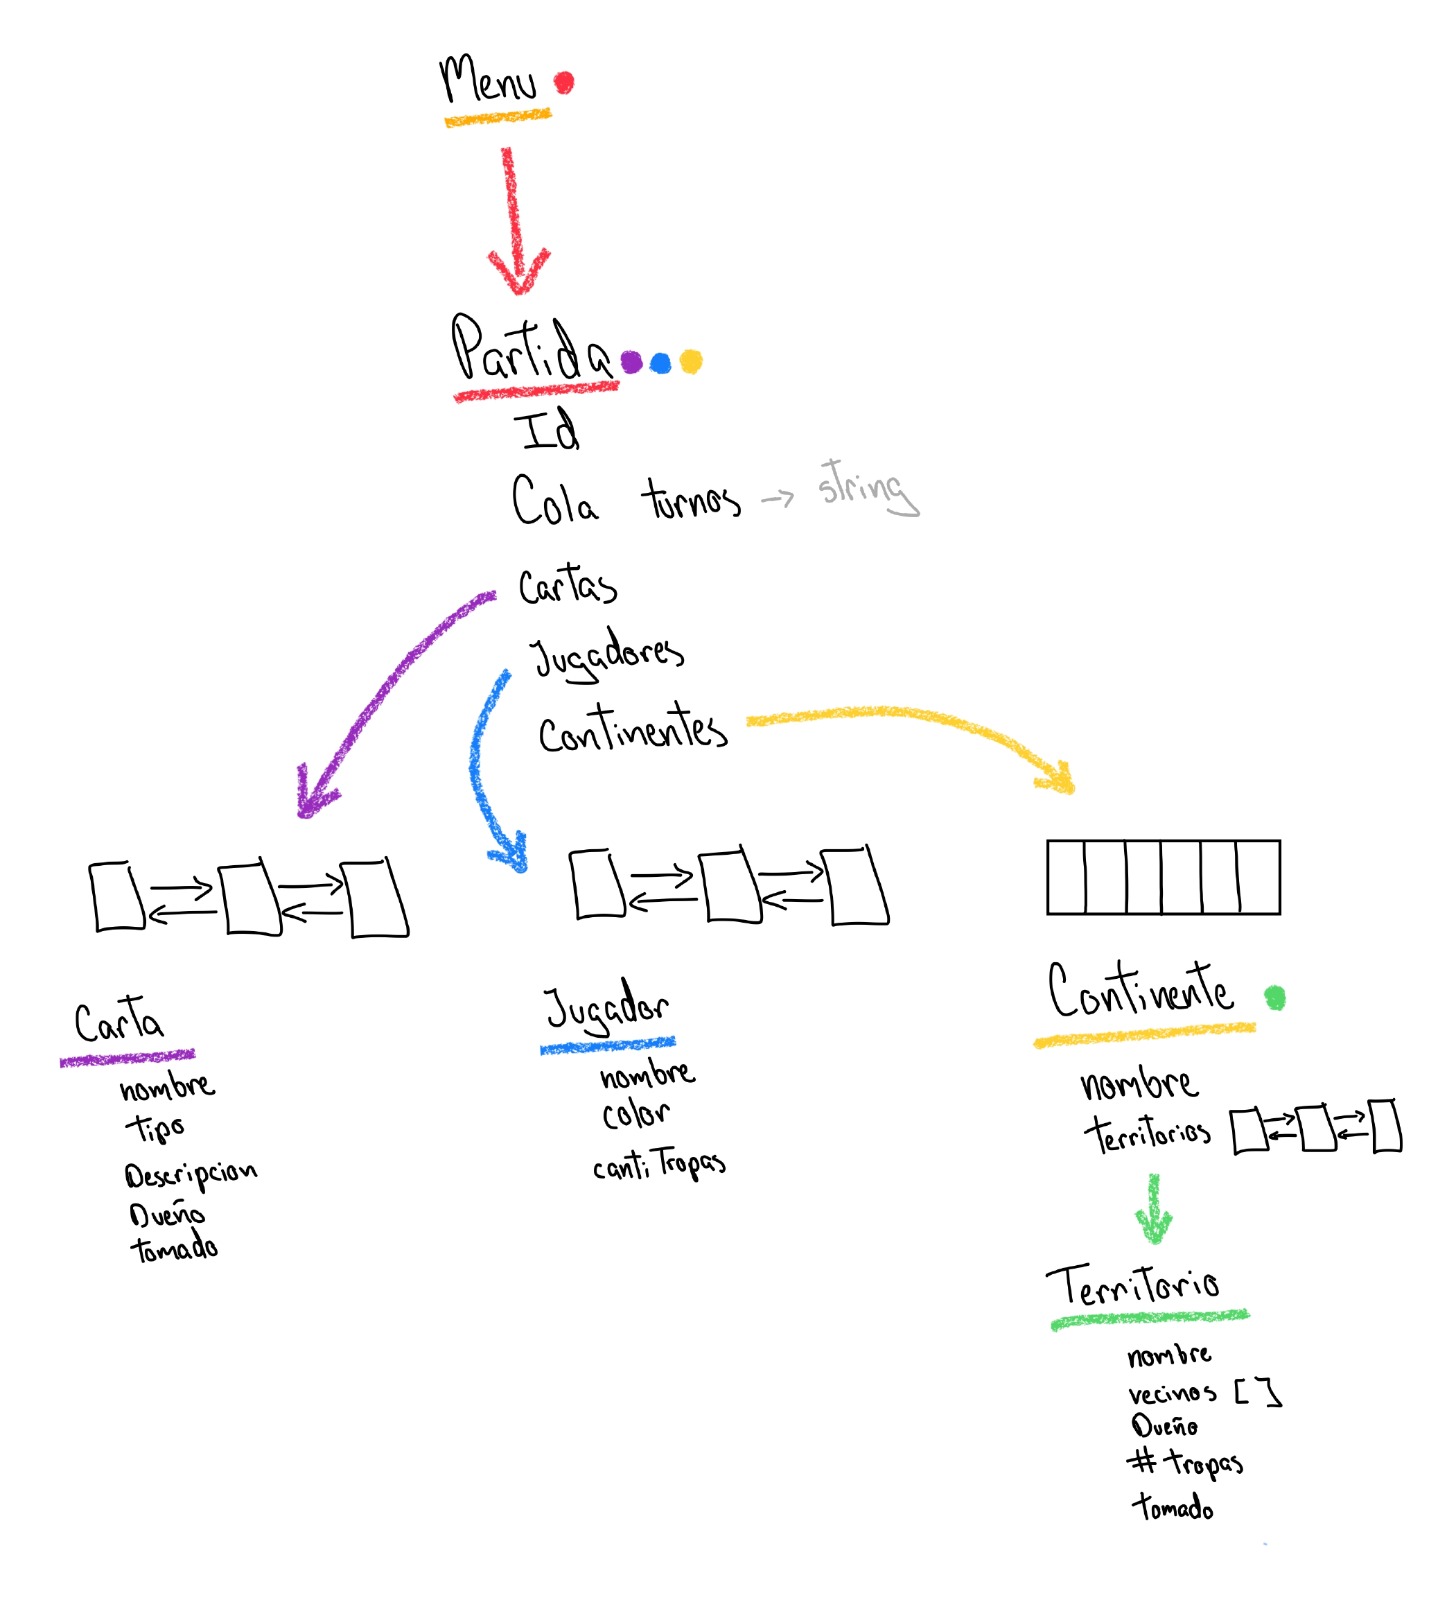 Menu
Partida
Id
Cola turnos → string
Cartas
Jugadores
Continentes
Carta
nombre
tipo
Descripcion
Dueño
tomado
Jugador
nombre
color
cantiTropas
Continente
nombre
territorios
Territorio
nombre
vecinos []
Dueño
# tropas
tomado